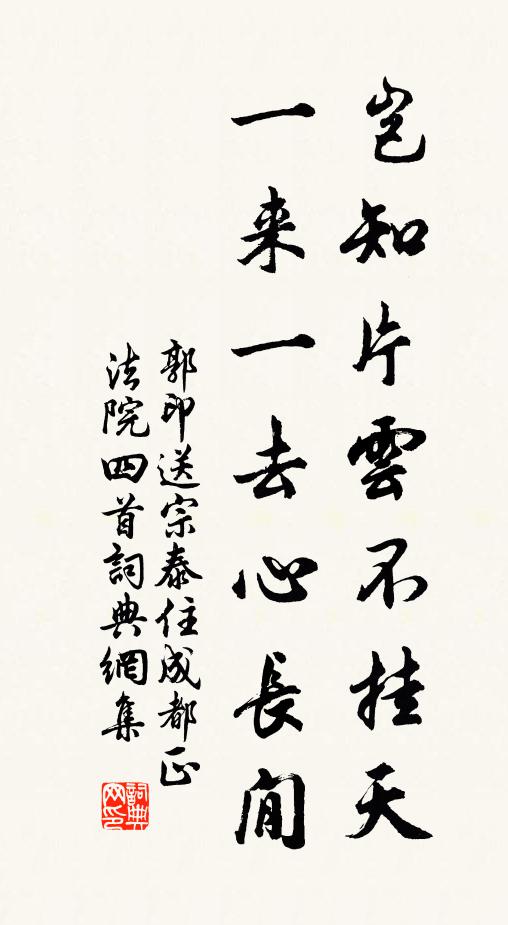 豈知片雲不挂天
一来一去心長閒
郭印送宗泰住成都正
法院四首詞典網集
詞典网印